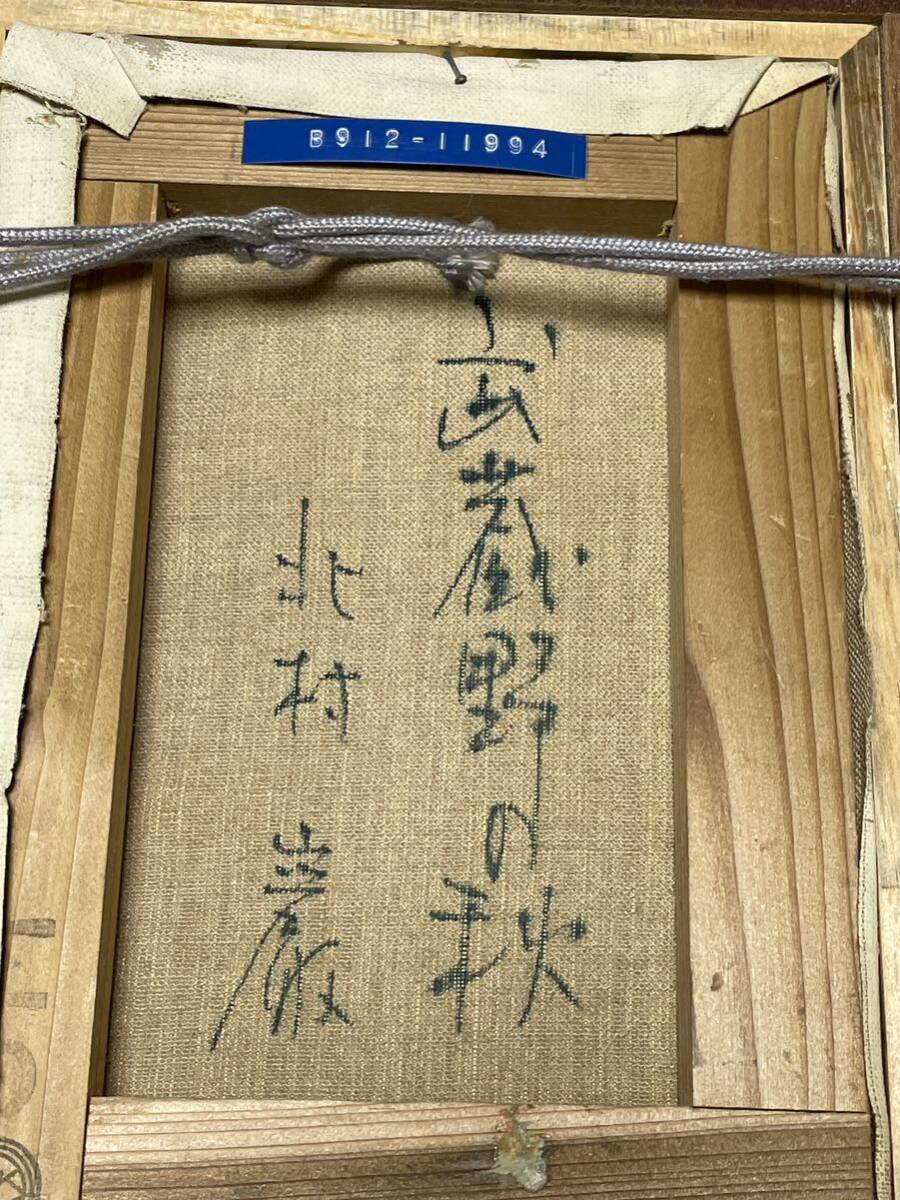 B912-11994
武蔵野の秋
北村 巌